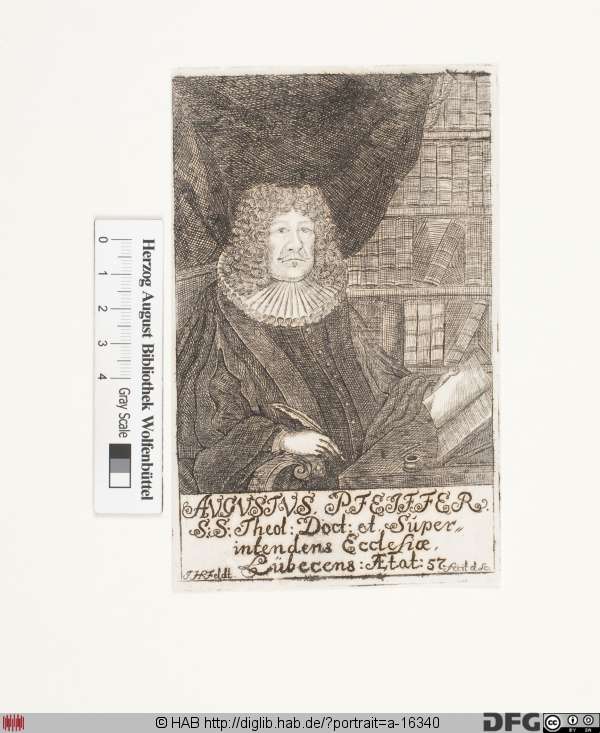 Herzog August Bibliothek Wolfenbüttel
0 1 2 3 4
Gray Scale
AVGVSTVS PFEIFFER.
S:S: Theol: Doct: et Super„
intendens Ecclesiæ
Lübecens: Ætat: 57
J.H.Feldt
© HAB http://diglib.hab.de/?portrait=a-16340
DFG
cc
BY SA